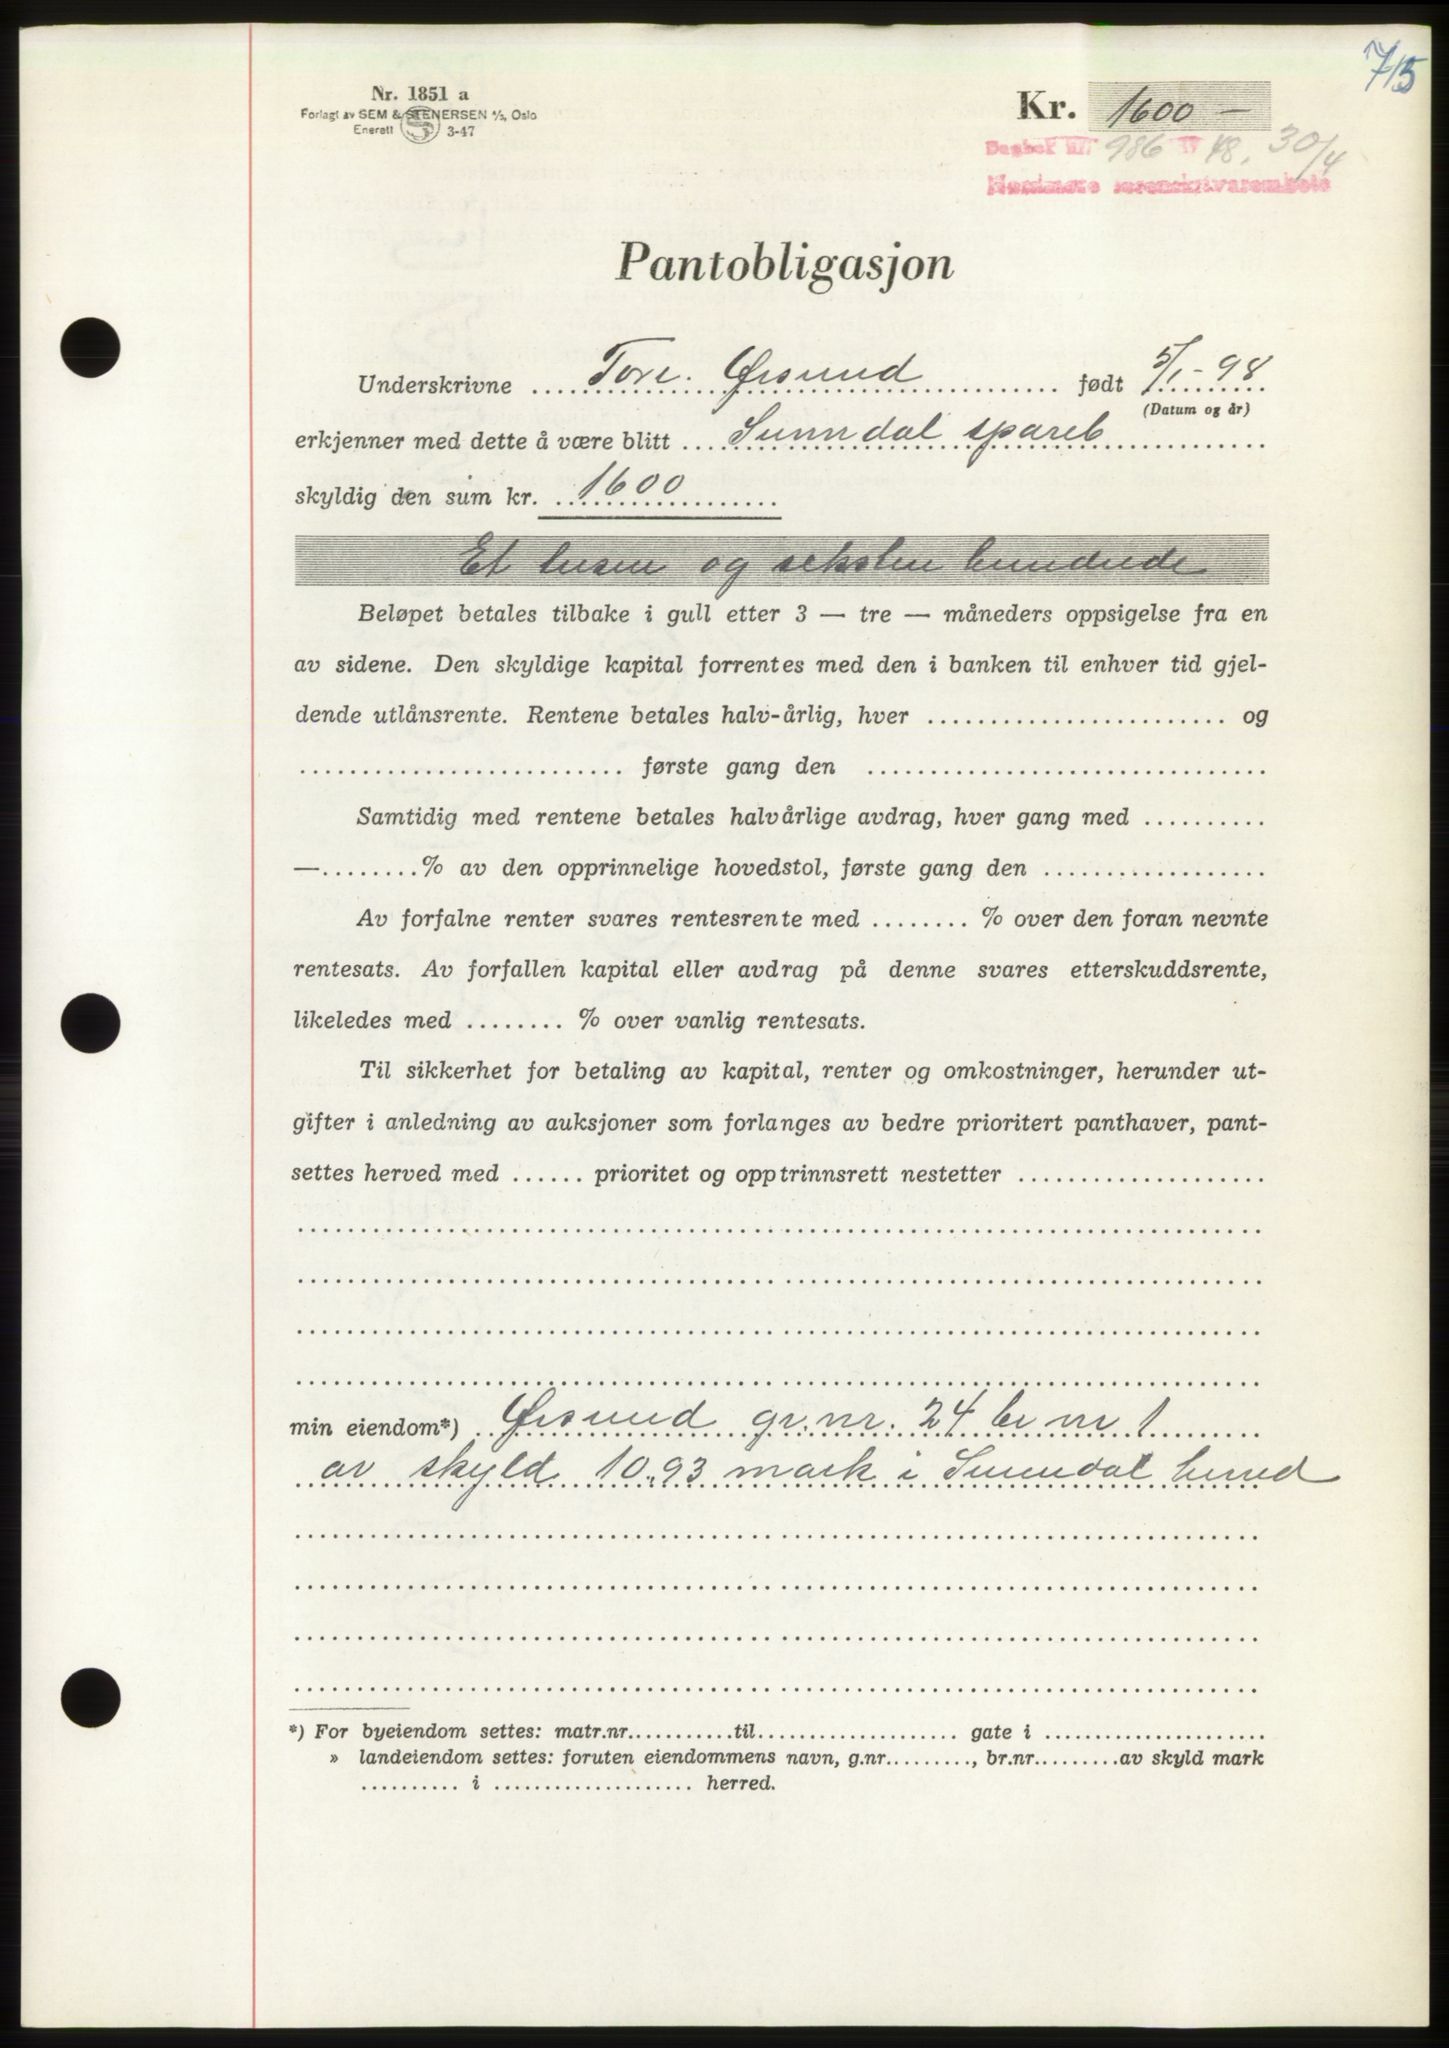 715
Nr. 1851 a
Forlagt av SEM & STENERSEN A/S, Oslo
Enerett 3-47
Kr. 1600 —
Dagbok nr. 986 19 48, 30/4
Nordmøre sorenskrivarembete
Pantobligasjon
Underskrivne Tore Ørsund født 5/1-98
(Datum og år)
erkjenner med dette å være blitt Sunndal spareb
skyldig den sum kr. 1600
Et tusen og seksten hundrede
Beløpet betales tilbake i gull etter 3 — tre — måneders oppsigelse fra en
av sidene. Den skyldige kapital forrentes med den i banken til enhver tid gjel-
dende utlånsrente. Rentene betales halv-årlig, hver ........................ og
.......................... første gang den ................................
Samtidig med rentene betales halvårlige avdrag, hver gang med ..........
—........% av den opprinnelige hovedstol, første gang den ..................
Av forfalne renter svares rentesrente med ........ % over den foran nevnte
rentesats. Av forfallen kapital eller avdrag på denne svares etterskuddsrente,
likeledes med ........ % over vanlig rentesats.
Til sikkerhet for betaling av kapital, renter og omkostninger, herunder ut-
gifter i anledning av auksjoner som forlanges av bedre prioritert panthaver, pant-
settes herved med ...... prioritet og opptrinnsrett nestetter ....................
min eiendom*) Ørsund gr. nr. 24 br nr 1
av skyld 10.93 mark i Sunndal herred
*) For byeiendom settes: matr.nr............til.................... gate i ......................
» landeiendom settes: foruten eiendommens navn, g.nr.........., br.nr.........av skyld mark
.......... i .................... herred.